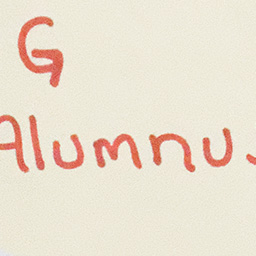 G
Alumnu